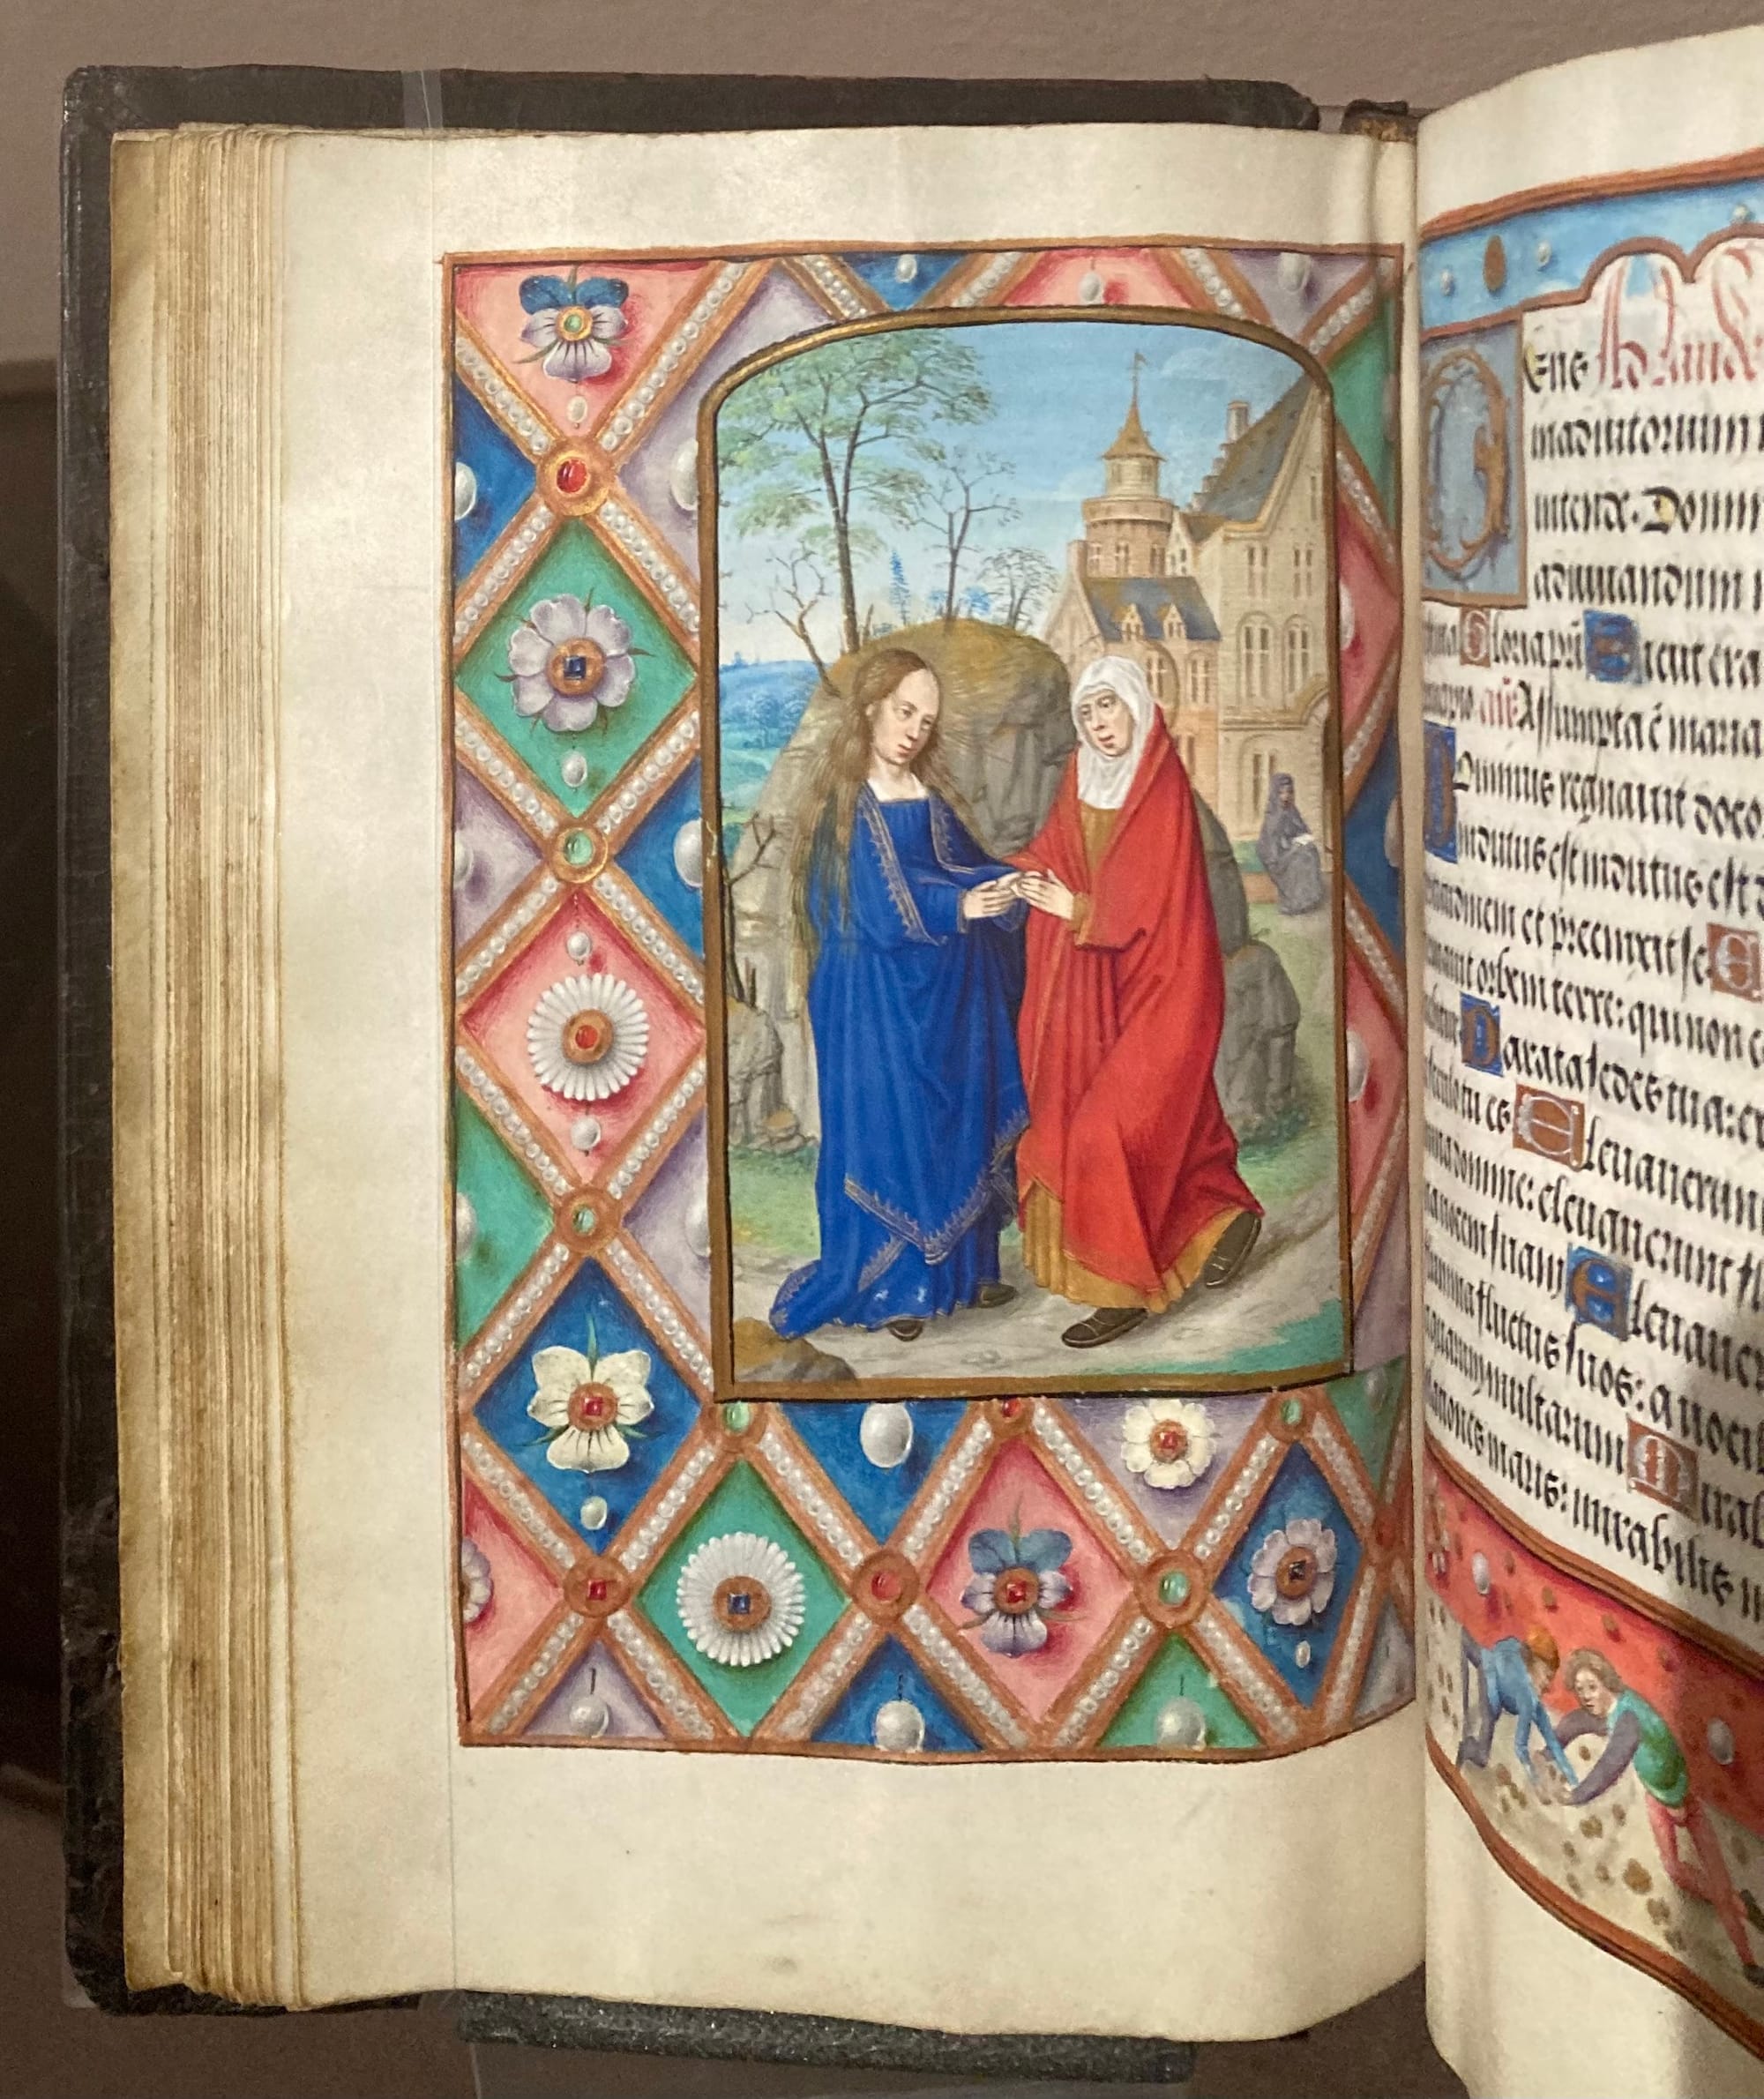 Deus Ad laud
in adiutorium
intende. Domin
adiuuandum
Gloria pri Sicut era
añ Assumpta ē maria
Dominus regnauit deco
indutus est indutus est
et precinxit se E
orbem terre: qui non
Parata sedes tua: ex
tu es Eleuauerun
domine: eleuauerunt fl
uocem suam Eleuaue
flumina fluctus suos: a uoci
aquarum multarum Mirab
maris: mirabilis